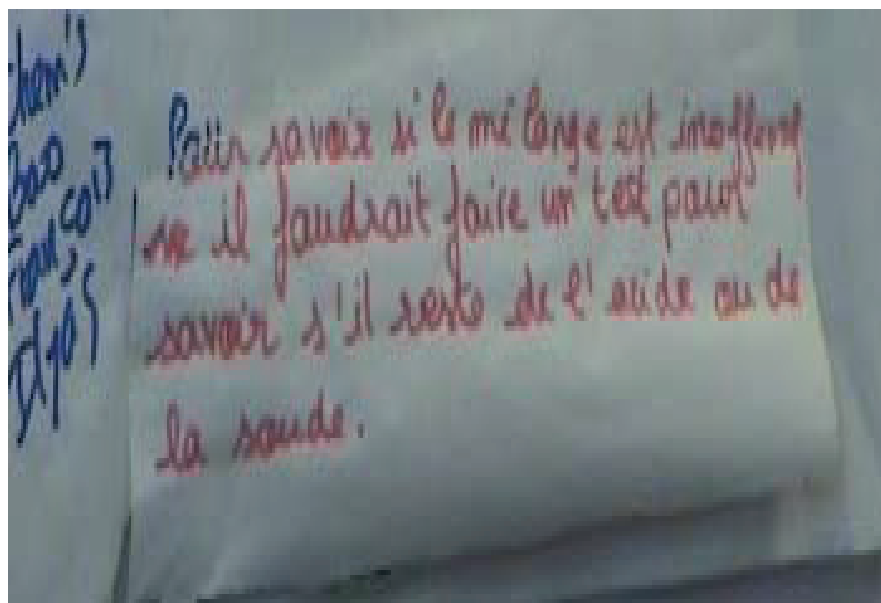 Pour savoir si le mélange est inoffensif
il faudrait faire un test pour
savoir s'il reste de l'acide ou de
la soude.